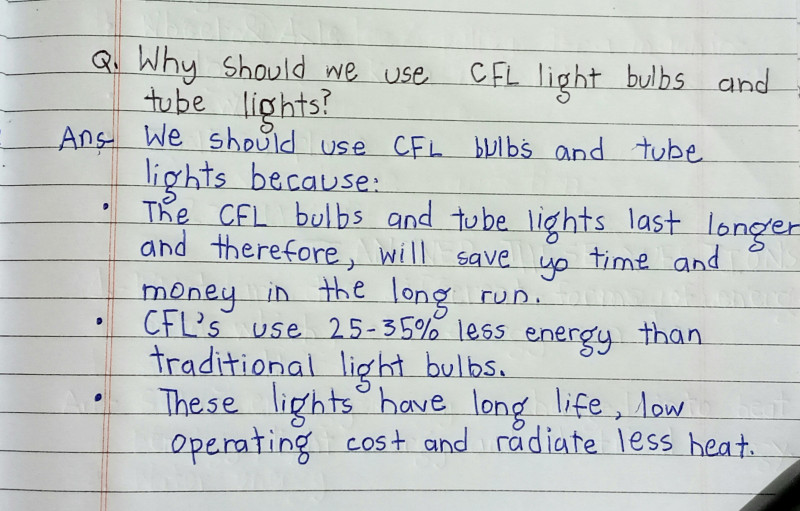 Q. Why should we use CFL light bulbs and
tube lights?
Ans We should use CFL bulbs and tube
lights because:
• The CFL bulbs and tube lights last longer
and therefore, will save yo time and
money in the long run.
• CFL's use 25-35% less energy than
traditional light bulbs.
• These lights have long life, low
operating cost and radiate less heat.